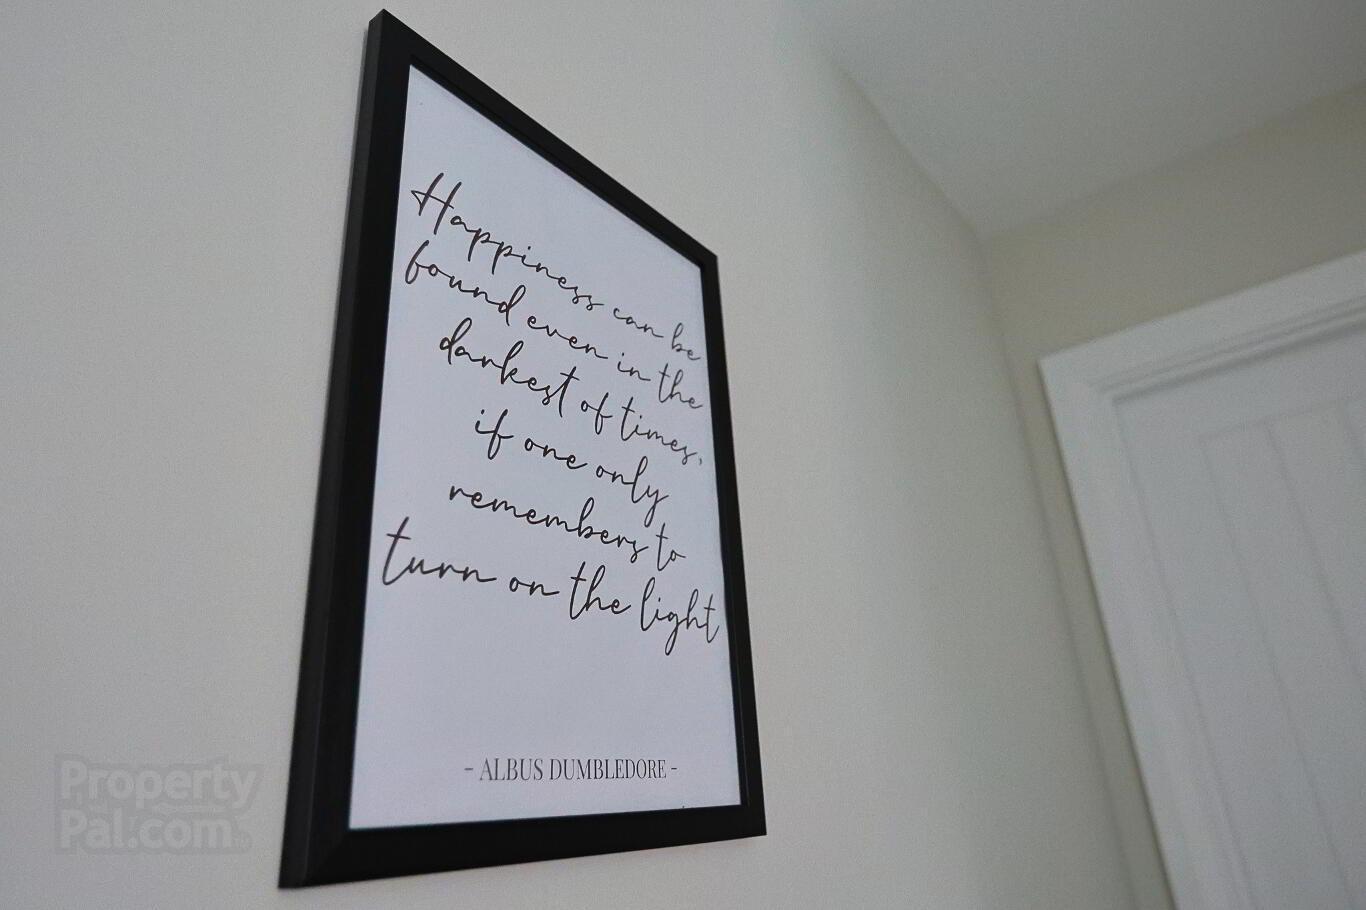 Happiness can be
found even in the
darkest of times,
if one only
remembers to
turn on the light
- ALBUS DUMBLEDORE -
Property
Pal.com